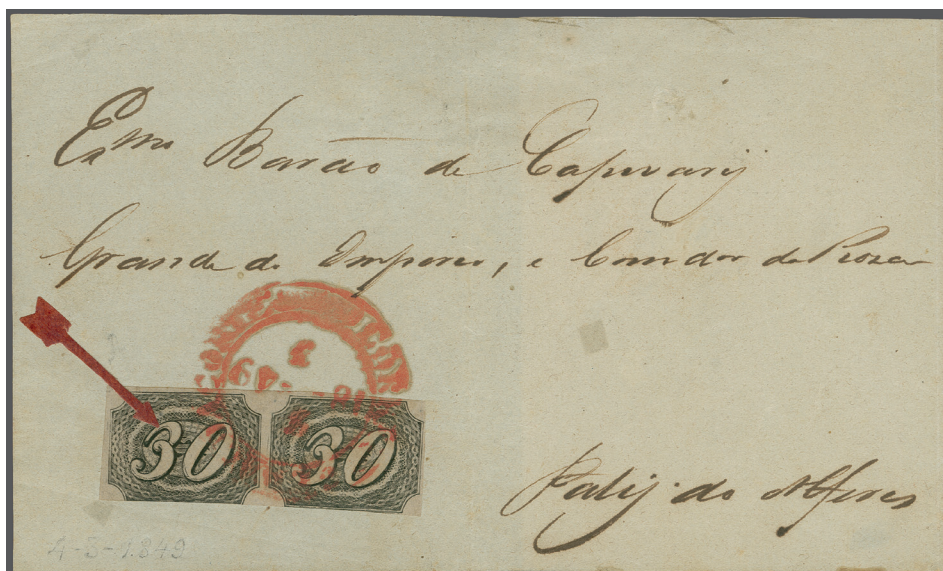 Exmo Barão de Capivarij
Grande do Imperio, e Comdor da Roza
30 30
Patij do Alferes
4-3-1849